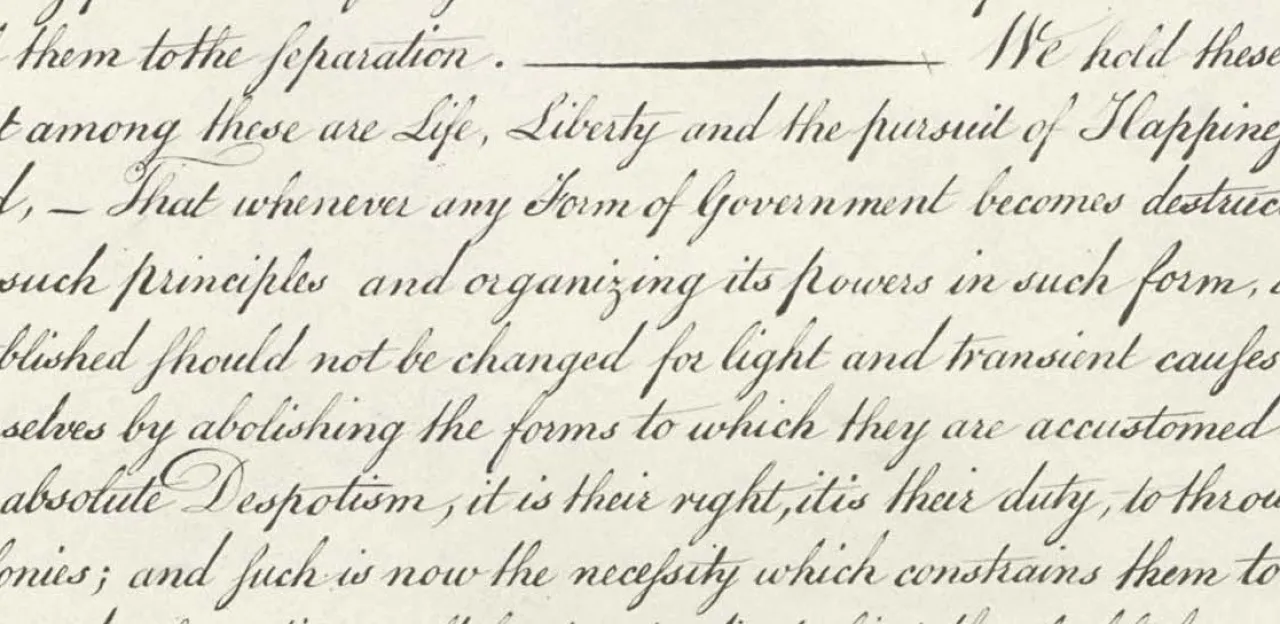 them to the ſeparation. We hold these
among these are Life, Liberty and the pursuit of Happine
, — That whenever any Form of Government becomes destruc
such principles and organizing its powers in such form,
bliſhed ſhould not be changed for light and transient cauſes
selves by abolishing the forms to which they are accustomed
absolute Despotism, it is their right, it is their duty, to throw
onies; and ſuch is now the neceſsity which constrains them to